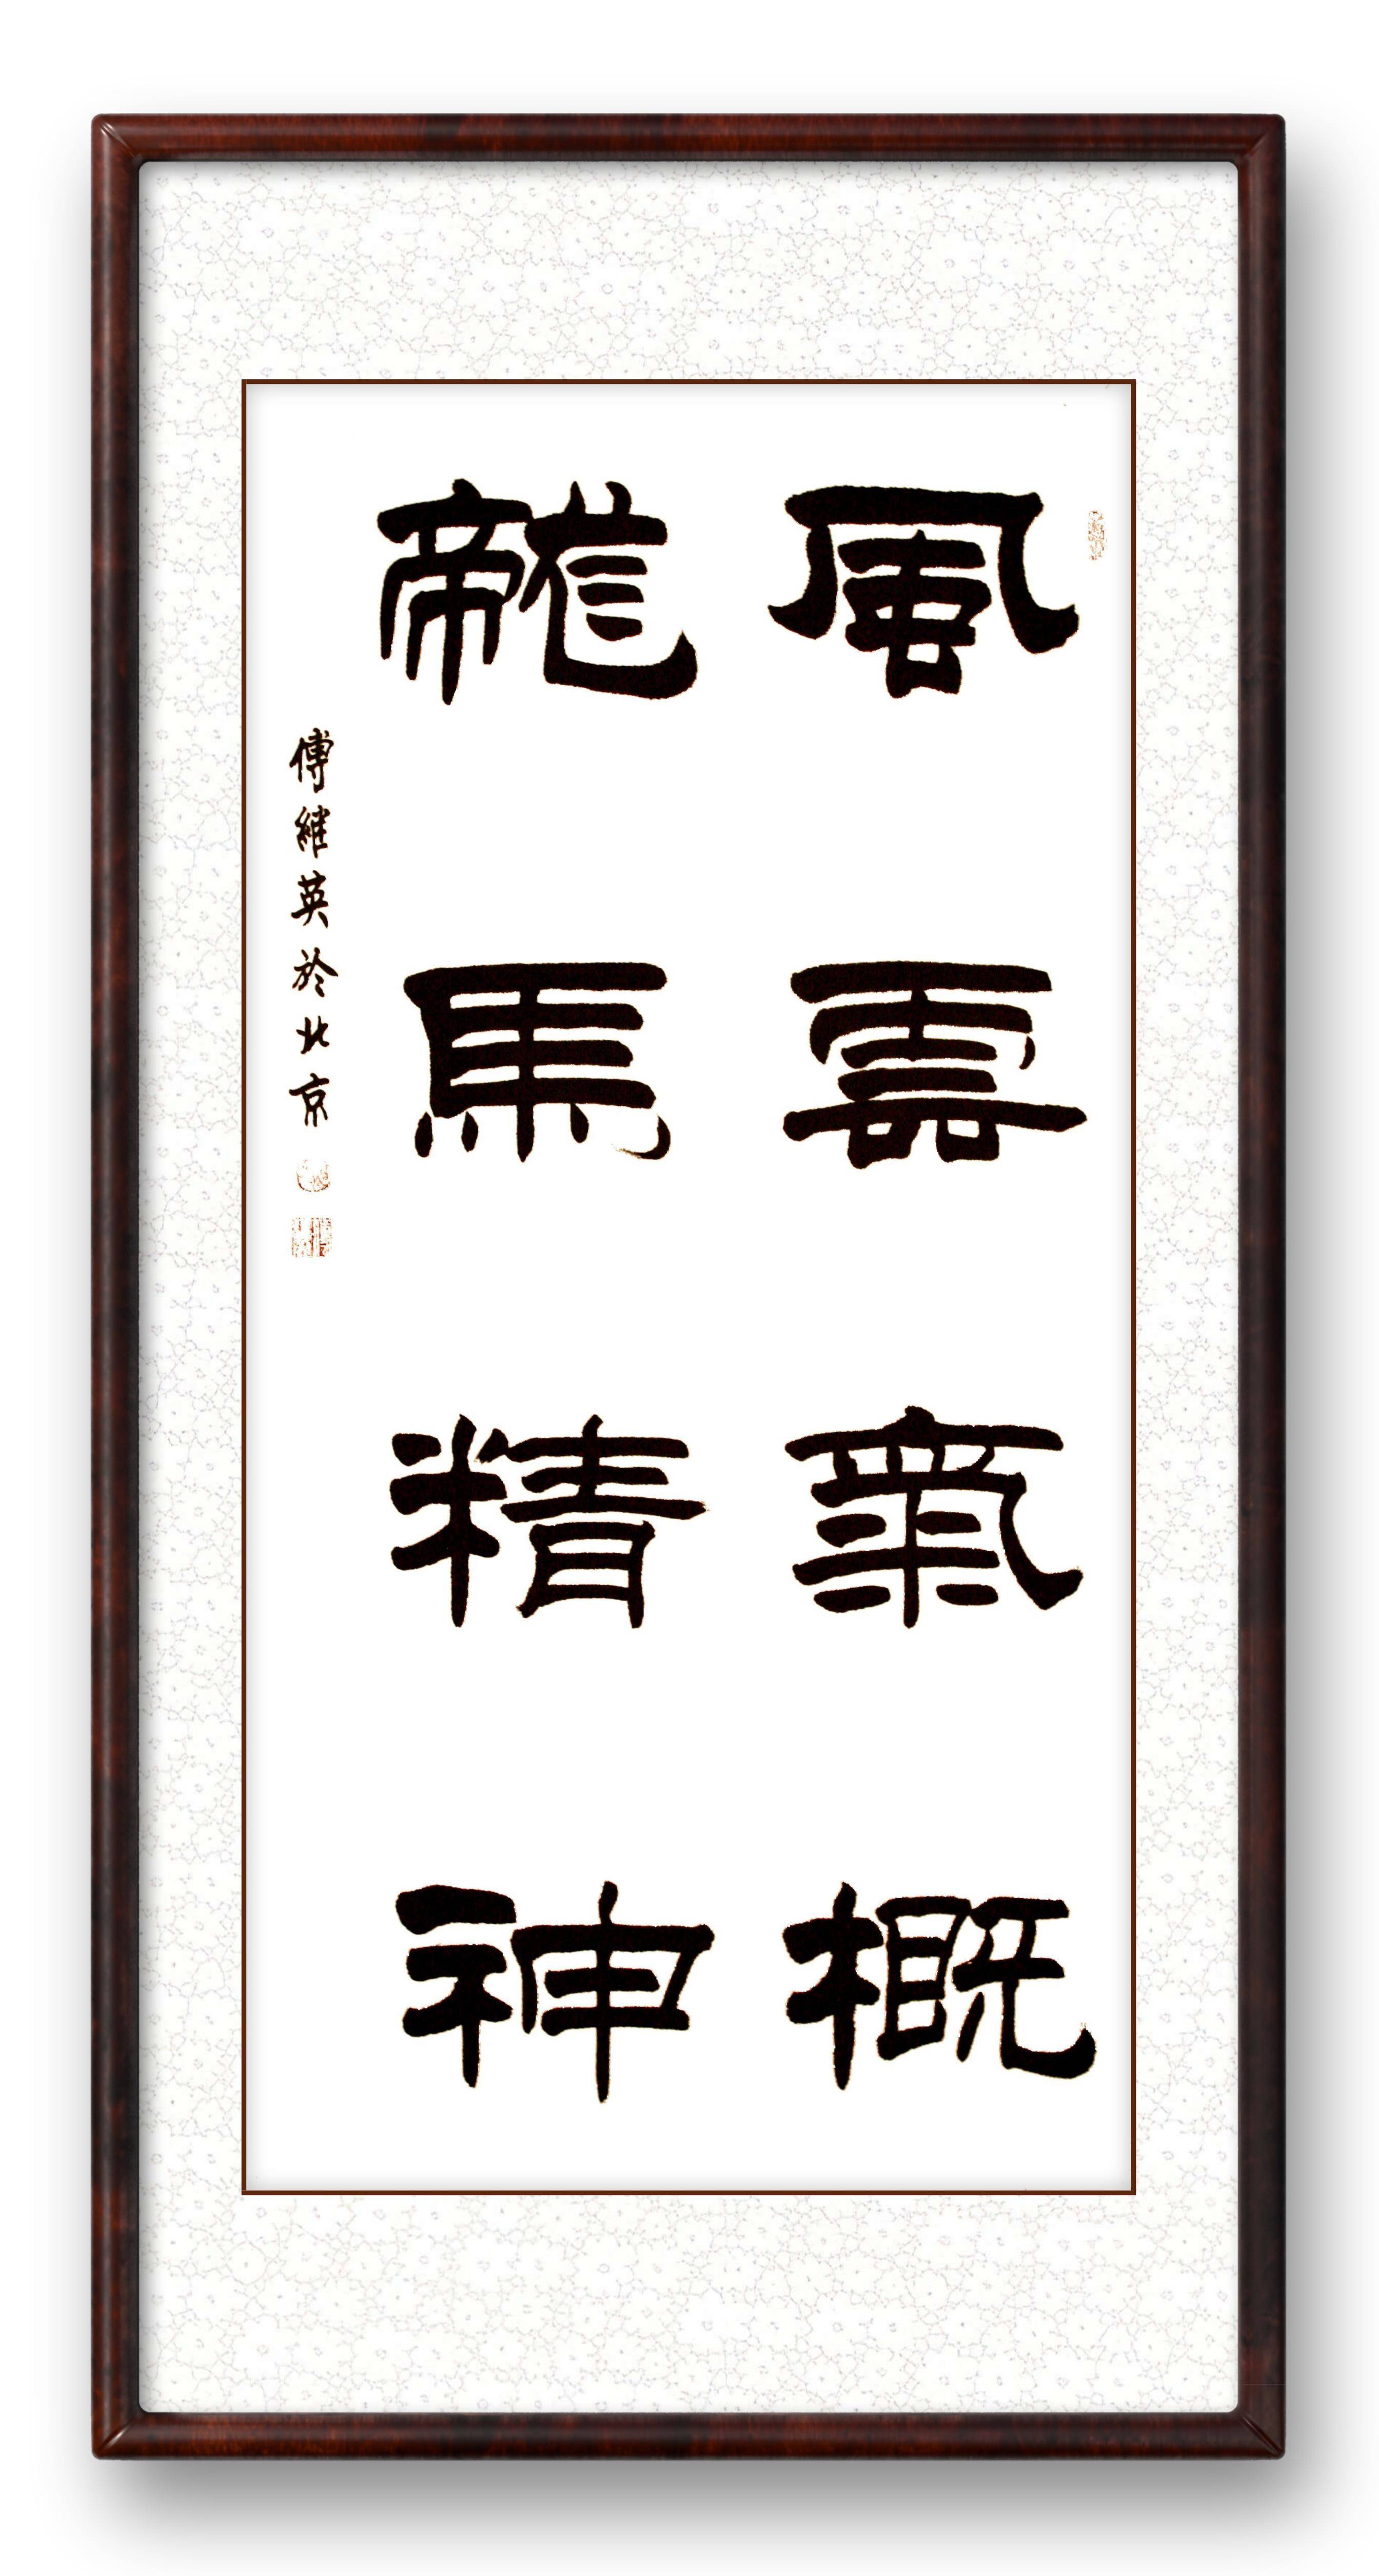 風雲氣概
龍馬精神
傅維英於北京